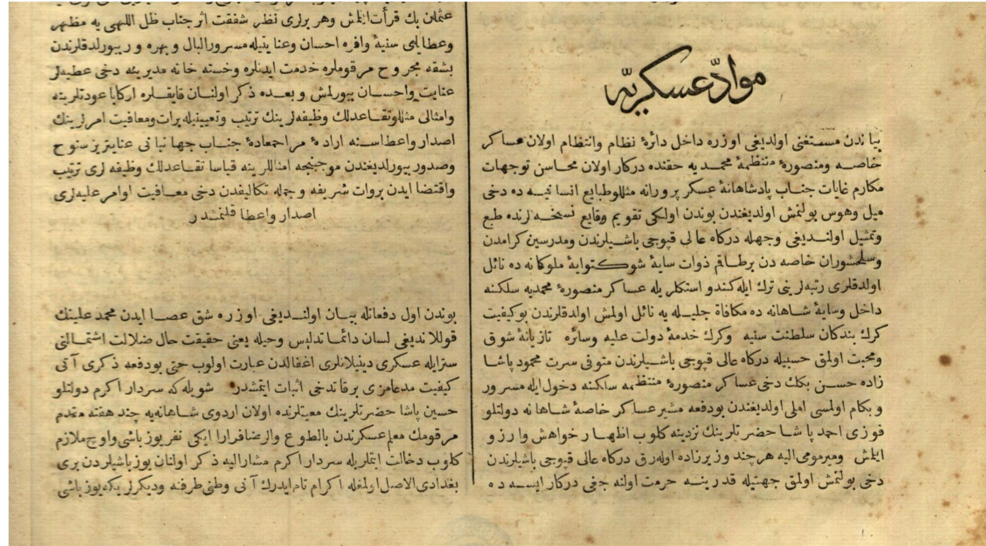 مواد عسكريه
بياندن مستغنى اولديغى اوزره داخل دائرهٔ نظام وانتظام اولان عساكر
خاصه ومنصورهٔ منتظمهٔ محمديه حقنده دركار اولان محاسن توجهات
مكارم غايات جناب پادشاهانهٔ عسكر پرورانه مثللو طبايع انسانيه ده دخى
ميل وهوس بولنمش اولديغندن بوندن اولكى تقويم وقايع نسخه لرنده طبع
وتمثيل اولنديغى وجهله دركاه عالى قپوجى باشيلرندن ومدرسين كرامدن
وسلحشوران خاصه دن برطاقم ذوات سايهٔ شوكتوايهٔ ملوكانه ده نائل
اولدقلرى رتبه لرينى ترك ايله كندو استكلريله عساكر منصورهٔ محمديه سلكنه
داخل وسايهٔ شاهانه ده مكافاة جليله يه نائل اولمش اولدقلرندن بوكيفيت
كرك بندكان سلطنت سنيه وكرك خدمهٔ دولت عليه وسائره تازيانهٔ شوق
ومحبت اولمق حسبيله دركاه عالى قپوجى باشيلرندن متوفى سرت محمود پاشا
زاده حسن بك دخى عساكر منصورهٔ منتظمه سلكنه دخول ايله مسرور
وبكام اولمسى املى اولديغندن بودفعه مشير عساكر خاصهٔ شاهانه دولتلو
فوزى احمد پاشا حضرتلرينك نزدينه كلوب اظهار خواهش وارزو
ايلمش وميرمومى اليه هرچند وزير زاده اوله رق دركاه عالى قپوجى باشيلرندن
دخى بولنمش اولمق جهتيله قدرينه حرمت اولنه جغى دركار ايسه ده
عثمان بك قرأت ايتمش وهر برلرى نظر شفقت اثر جناب ظل اللهى يه مظهر
وعطاياى سنيهٔ وافره احسان وعنايتيله مسرور البال وبهره ور بيورلدقلرندن
بشقه مجروح مرقوملره خدمت ايدنلره وخسته خانه مديرينه دخى عطيه لر
عنايت واحسان بيورلمش وبعده ذكر اولنان قايقلره اركابا عودتلرينه
وامثالى مثللو تقاعدلك وظيفه لرينك ترتيب وتعيينيله برات ومعافيت امرلرينك
اصدار واعطاسنه ارادهٔ مراحمعادهٔ جناب جهانبانى عنايتريز سنوح
وصدور بيورلديغندن موجبنجه امثاللرينه قياسا تقاعدلك وظيفه لرى ترتيب
واقتضا ايدن بروات شريفه وجمله تكاليفدن دخى معافيت اوامر عليه لرى
اصدار واعطا قلنمشدر
بوندن اول دفعاتله بيان اولنديغى اوزره شق عصا ايدن محمد علينك
قوللانديغى لسان دائما تدليس وحيله يعنى حقيقت حال ضلالت اشتمالنى
ستر ايله عسكرى دينيلانلرى اغفالدن عبارت اولوب حتى بودفعه ذكرى آتى
كيفيت مدعامزى برقاتدخى اثبات ايتمشدر شويله كه سردار اكرم دولتلو
حسين پاشا حضرتلرينك معيتلرنده اولان اردوى شاهانه يه چند هفته مقدم
مرقومك معلم عسكرندن بالطوع والرضا فرارا ايكى نفر يوزباشى واوچ ملازم
كلوب دخالت ايتملريله سردار اكرم مشاراليه ذكر اولنان يوزباشيلردن برى
بغدادى الاصل اولمغله اكرام تام ايدرك آنى وطنى طرفنه وديكرلريكه يوزباشى